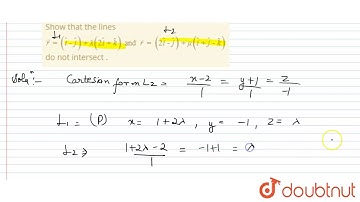 Show that the lines
L1 L2
r = (i - j) + λ(2i + k) and r = (2i - j) + μ(i + j - k)
do not intersect .
Soluⁿ:- Cartesian form L2 = x-2/1 = y+1/1 = z/-1
L1 = (P) x = 1+2λ , y = -1, z = λ
L2 ⇒ 1+2λ-2/1 = -1+1 =
doubtnut